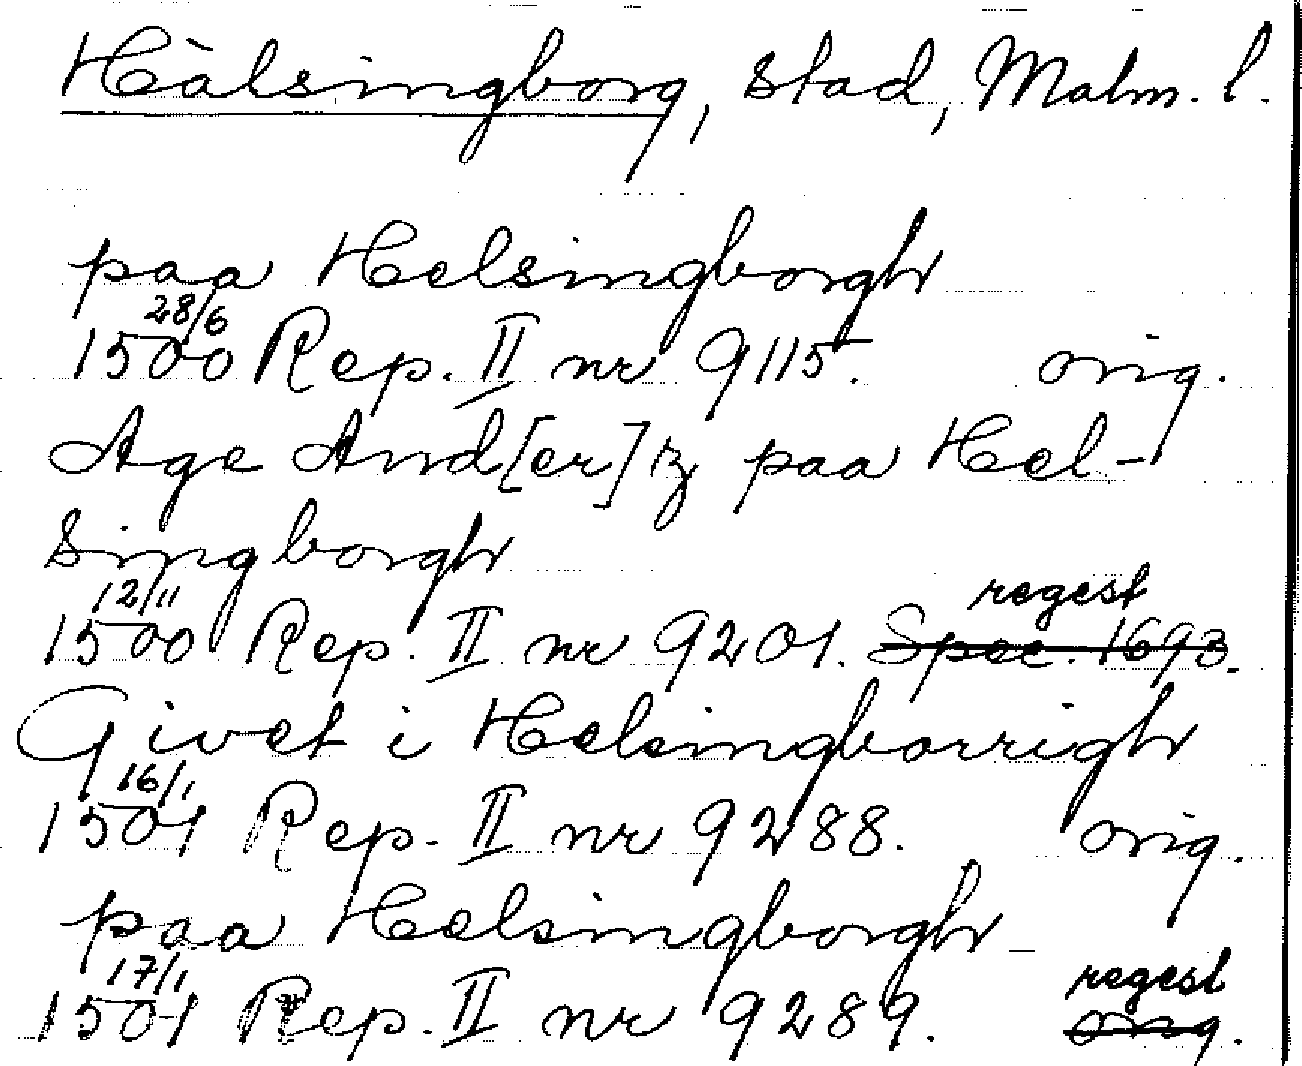 Hälsingborg, stad, Malm. l.
paa Helsingborgh
28/6
1500 Rep. II nr 9115. orig.
Age And[er]z paa Hel-
singborgh
12/11 regest
1500 Rep. II nr 9201. Spec. 1693.
Givet i Helsingborrigh
16/1
1501 Rep. II nr 9288. orig.
paa Helsingborgh
17/1 regest
1501 Rep. II nr 9289. orig.